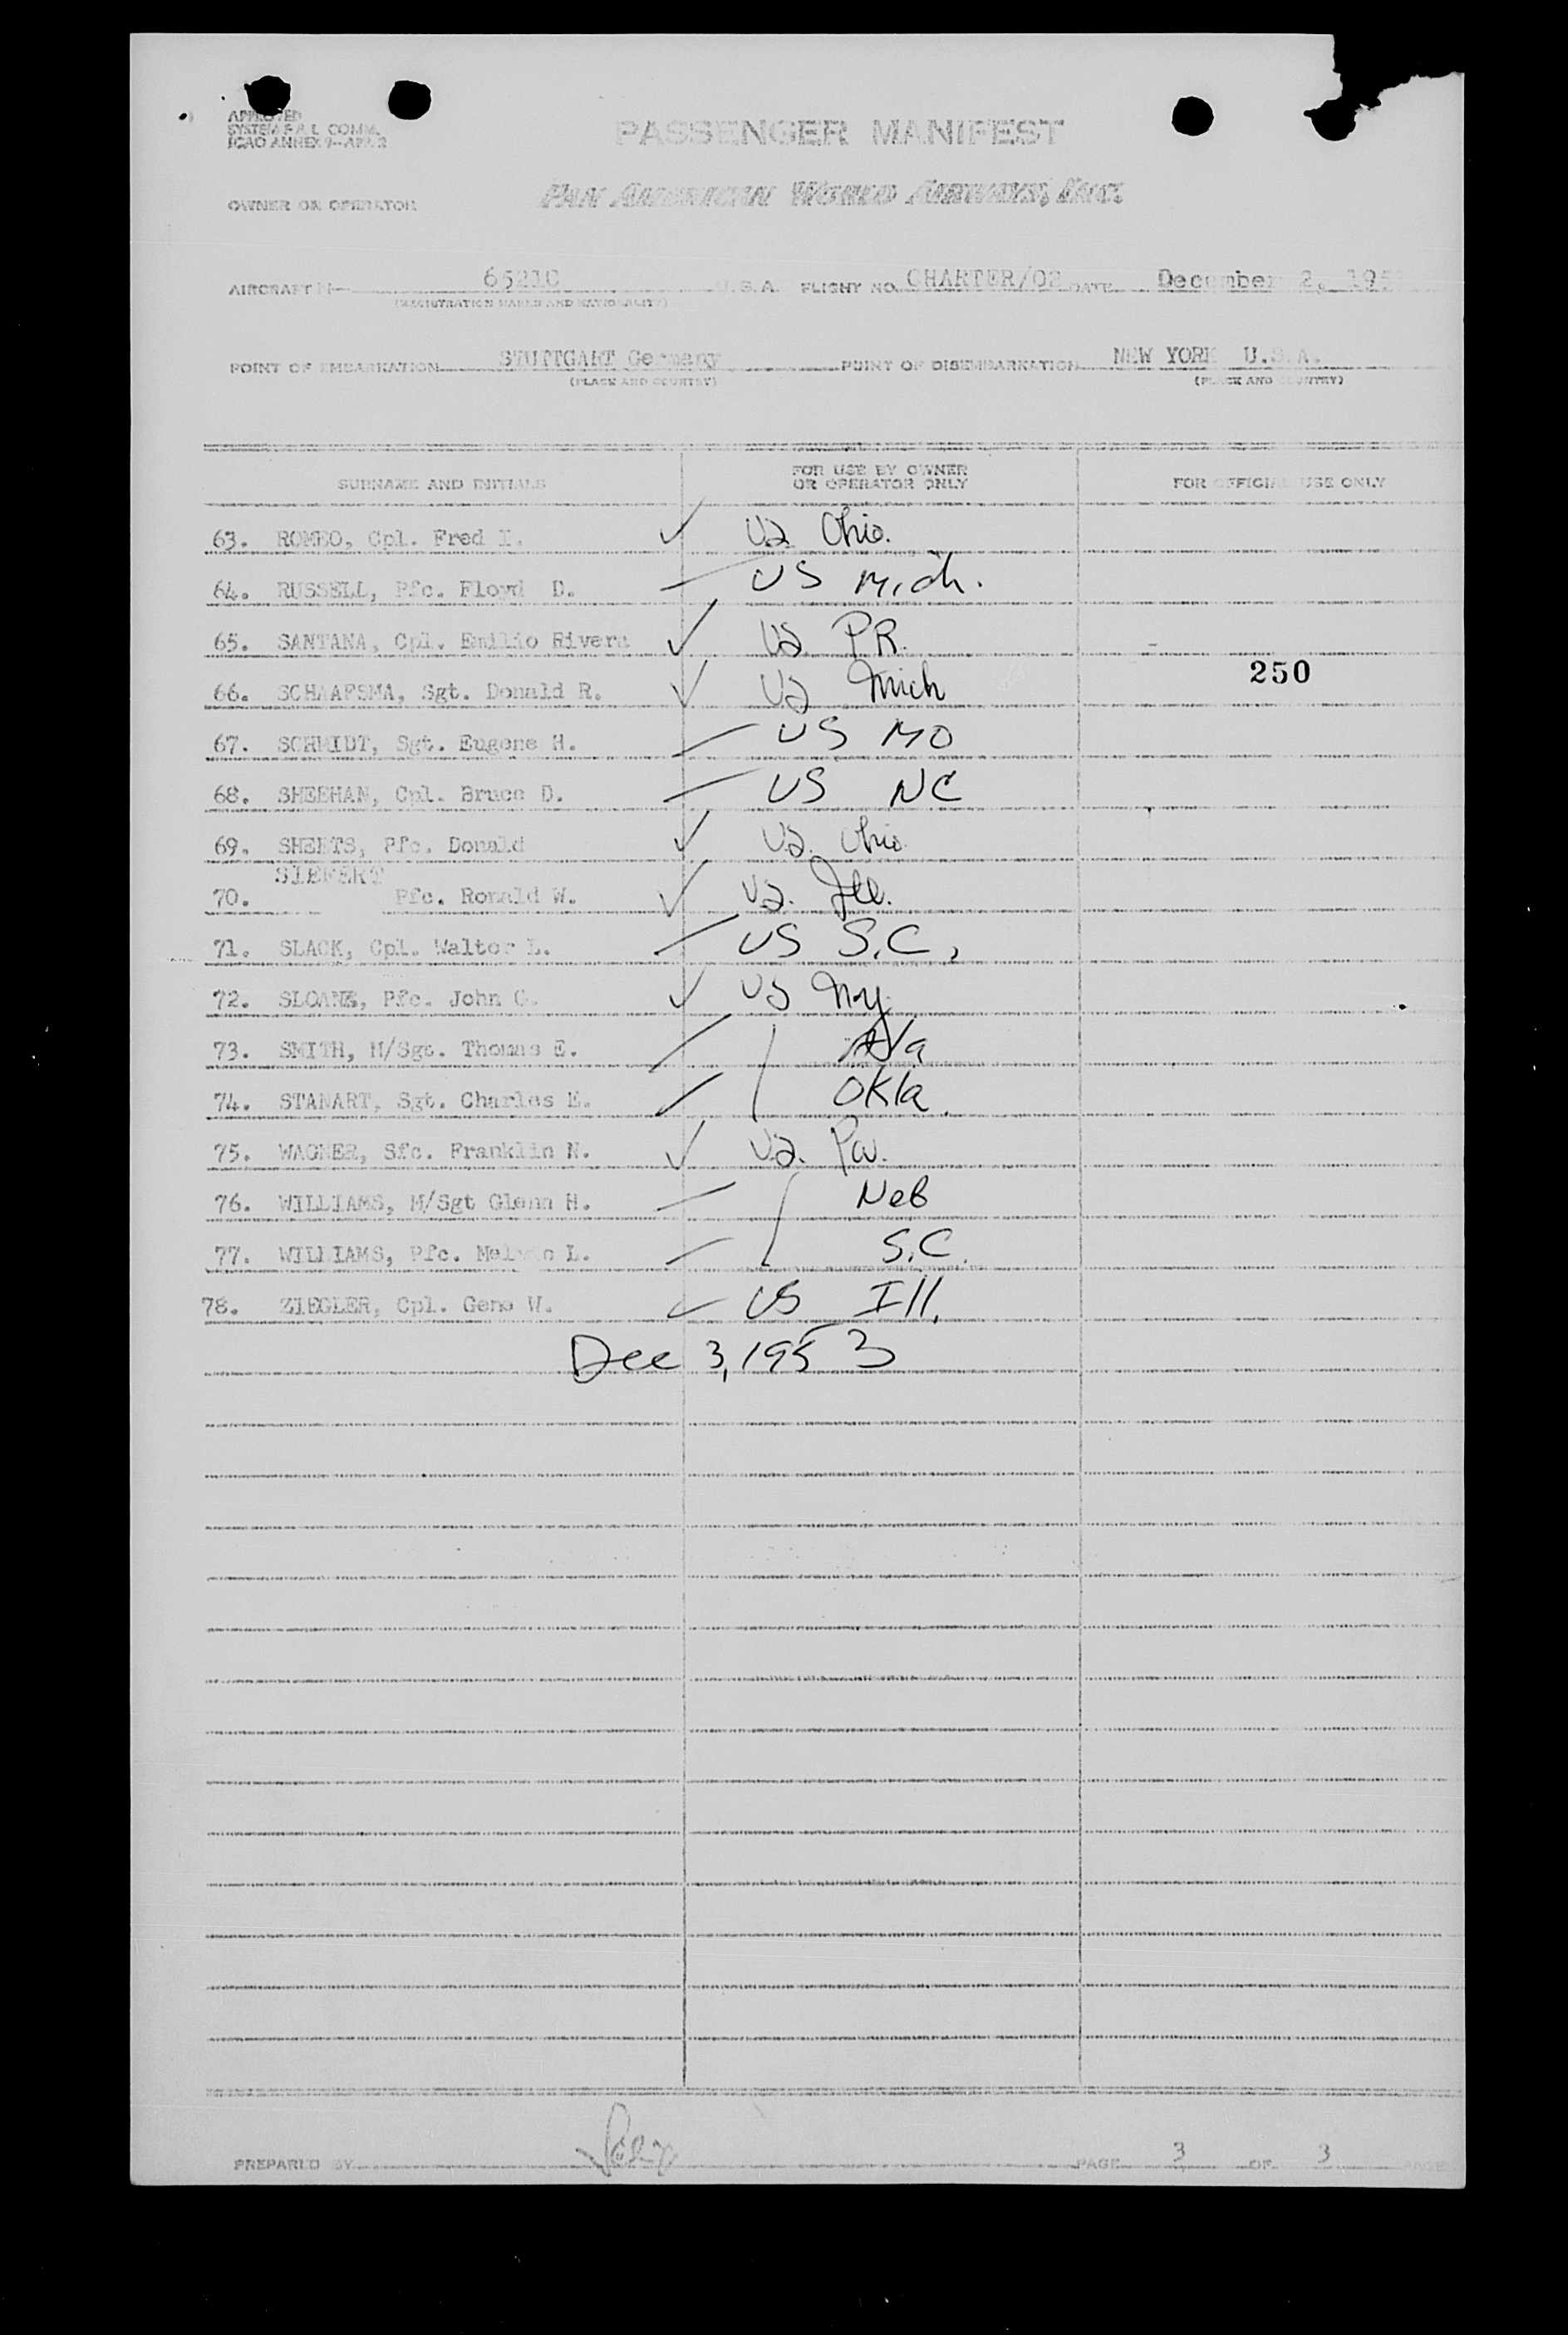 APPROVED
SYSTEM F.A.L. COMM.
ICAO ANNEX 9—APP. 2
PASSENGER MANIFEST
OWNER OR OPERATOR
PAN AMERICAN WORLD AIRWAYS, INC.
AIRCRAFT N— 65210 U.S.A. FLIGHT NO. CHARTER/02 DATE December 2, 195
(REGISTRATION MARKS AND NATIONALITY)
POINT OF EMBARKATION STUTTGART Germany POINT OF DISEMBARKATION NEW YORK U.S.A.
(PLACE AND COUNTRY) (PLACE AND COUNTRY)
SURNAME AND INITIALS FOR USE BY OWNER OR OPERATOR ONLY FOR OFFICIAL USE ONLY
63. ROMEO, Cpl. Fred I. ✓ US Ohio.
64. RUSSELL, Pfc. Floyd D. US Mich.
65. SANTANA, Cpl. Emilio Rivera ✓ US P.R.
66. SCHAAFSMA, Sgt. Donald R. ✓ US Mich
250
67. SCHMIDT, Sgt. Eugene H. US MO
68. SHEEHAN, Cpl. Bruce D. US NC
69. SHEETS, Pfc. Donald ✓ US. Ohio
SIEFERT
70. Pfc. Ronald W. ✓ US.
71. SLACK, Cpl. Walter L. US S.C.
72. SLOANE, Pfc. John ✓ US N.y.
73. SMITH, M/Sgt. Thomas E.
74. STANART, Sgt. Charles E. Okla.
75. WAGNER, Sfc. Franklin N. ✓ US. Pa.
76. WILLIAMS, M/Sgt Glenn H. Neb
77. WILLIAMS, Pfc. Melvin L. S.C.
78. ZIEGLER, Cpl. Gene W. ✓ US Ill.
Dec 3, 1953
PREPARED BY PAGE 3 OF 3 PAGE